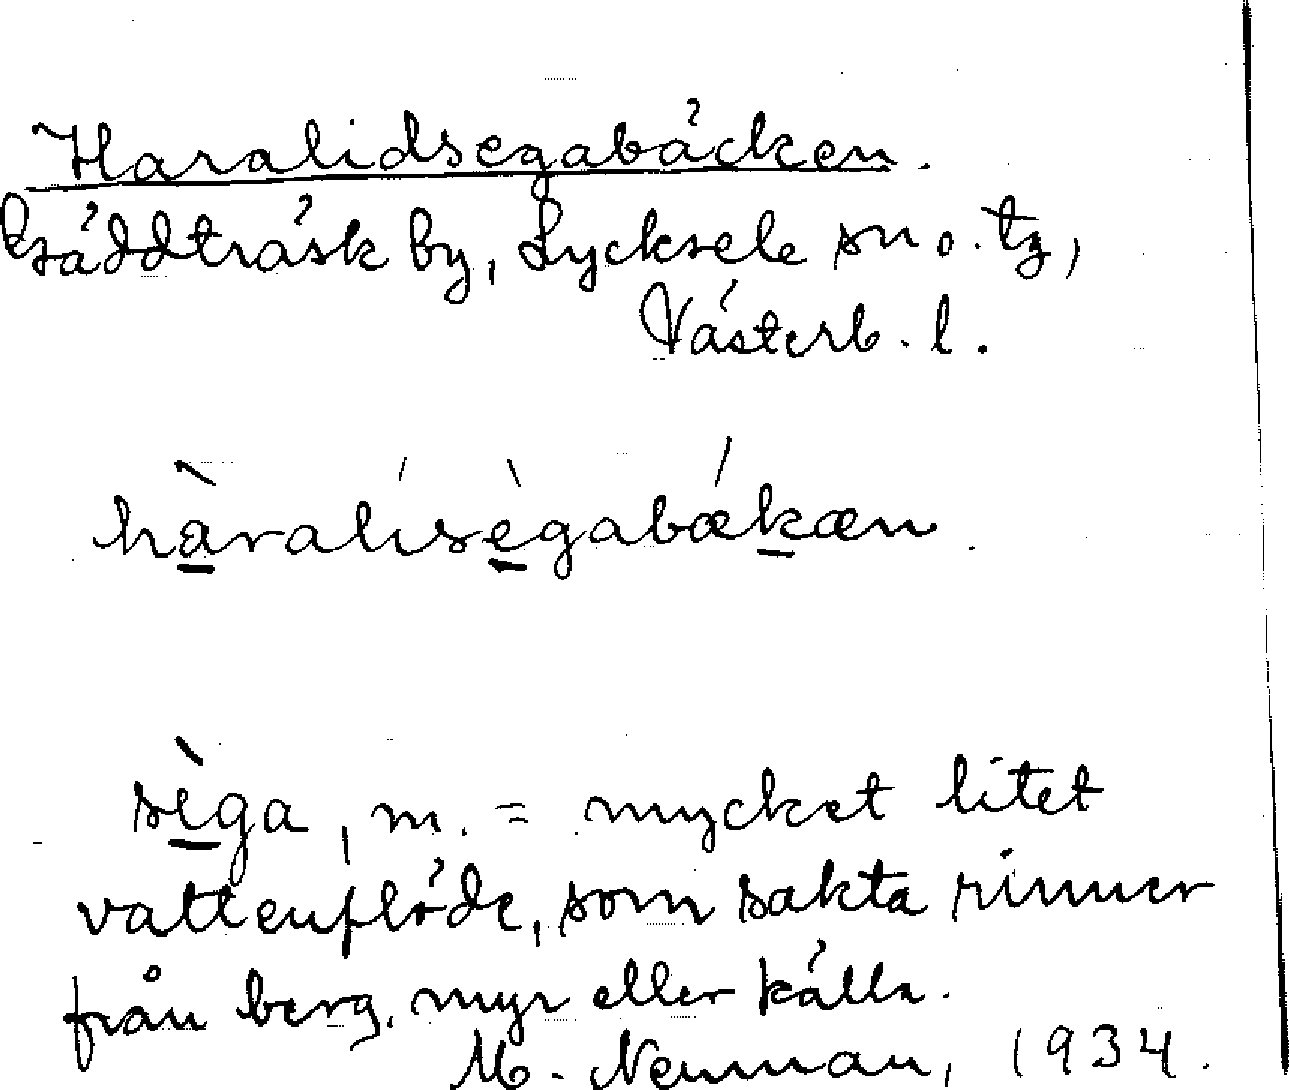 Haralidsegabäcken.
Gäddträsk by, Lycksele sn o. tg,
Västerb. l.
hàralísègabǽkæn.
sèga, m. = mycket litet
vattenflöde, som sakta rinner
från berg, myr eller källa.
M. Neuman, 1934.